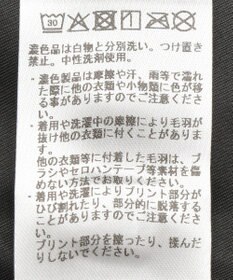 30
濃色品は白物と分別洗い。つけ置き
禁止。中性洗剤使用。
・濃色製品は摩擦や汗、雨等で濡れ
た際に他の衣類や小物類に色が移
る事がありますのでご注意くださ
い。
・着用や洗濯中の摩擦により毛羽が
抜け他の衣類に付くことがありま
す。
他の衣類等に付着した毛羽は、ブ
ラシやセロハンテープ等素材を傷
めない方法でお取りください。
・着用や洗濯によりプリント部分が
ひび割れたり、部分的に脱落する
ことがありますのでご注意くださ
い。
プリント部分を擦ったり、揉んだ
りしないでください。